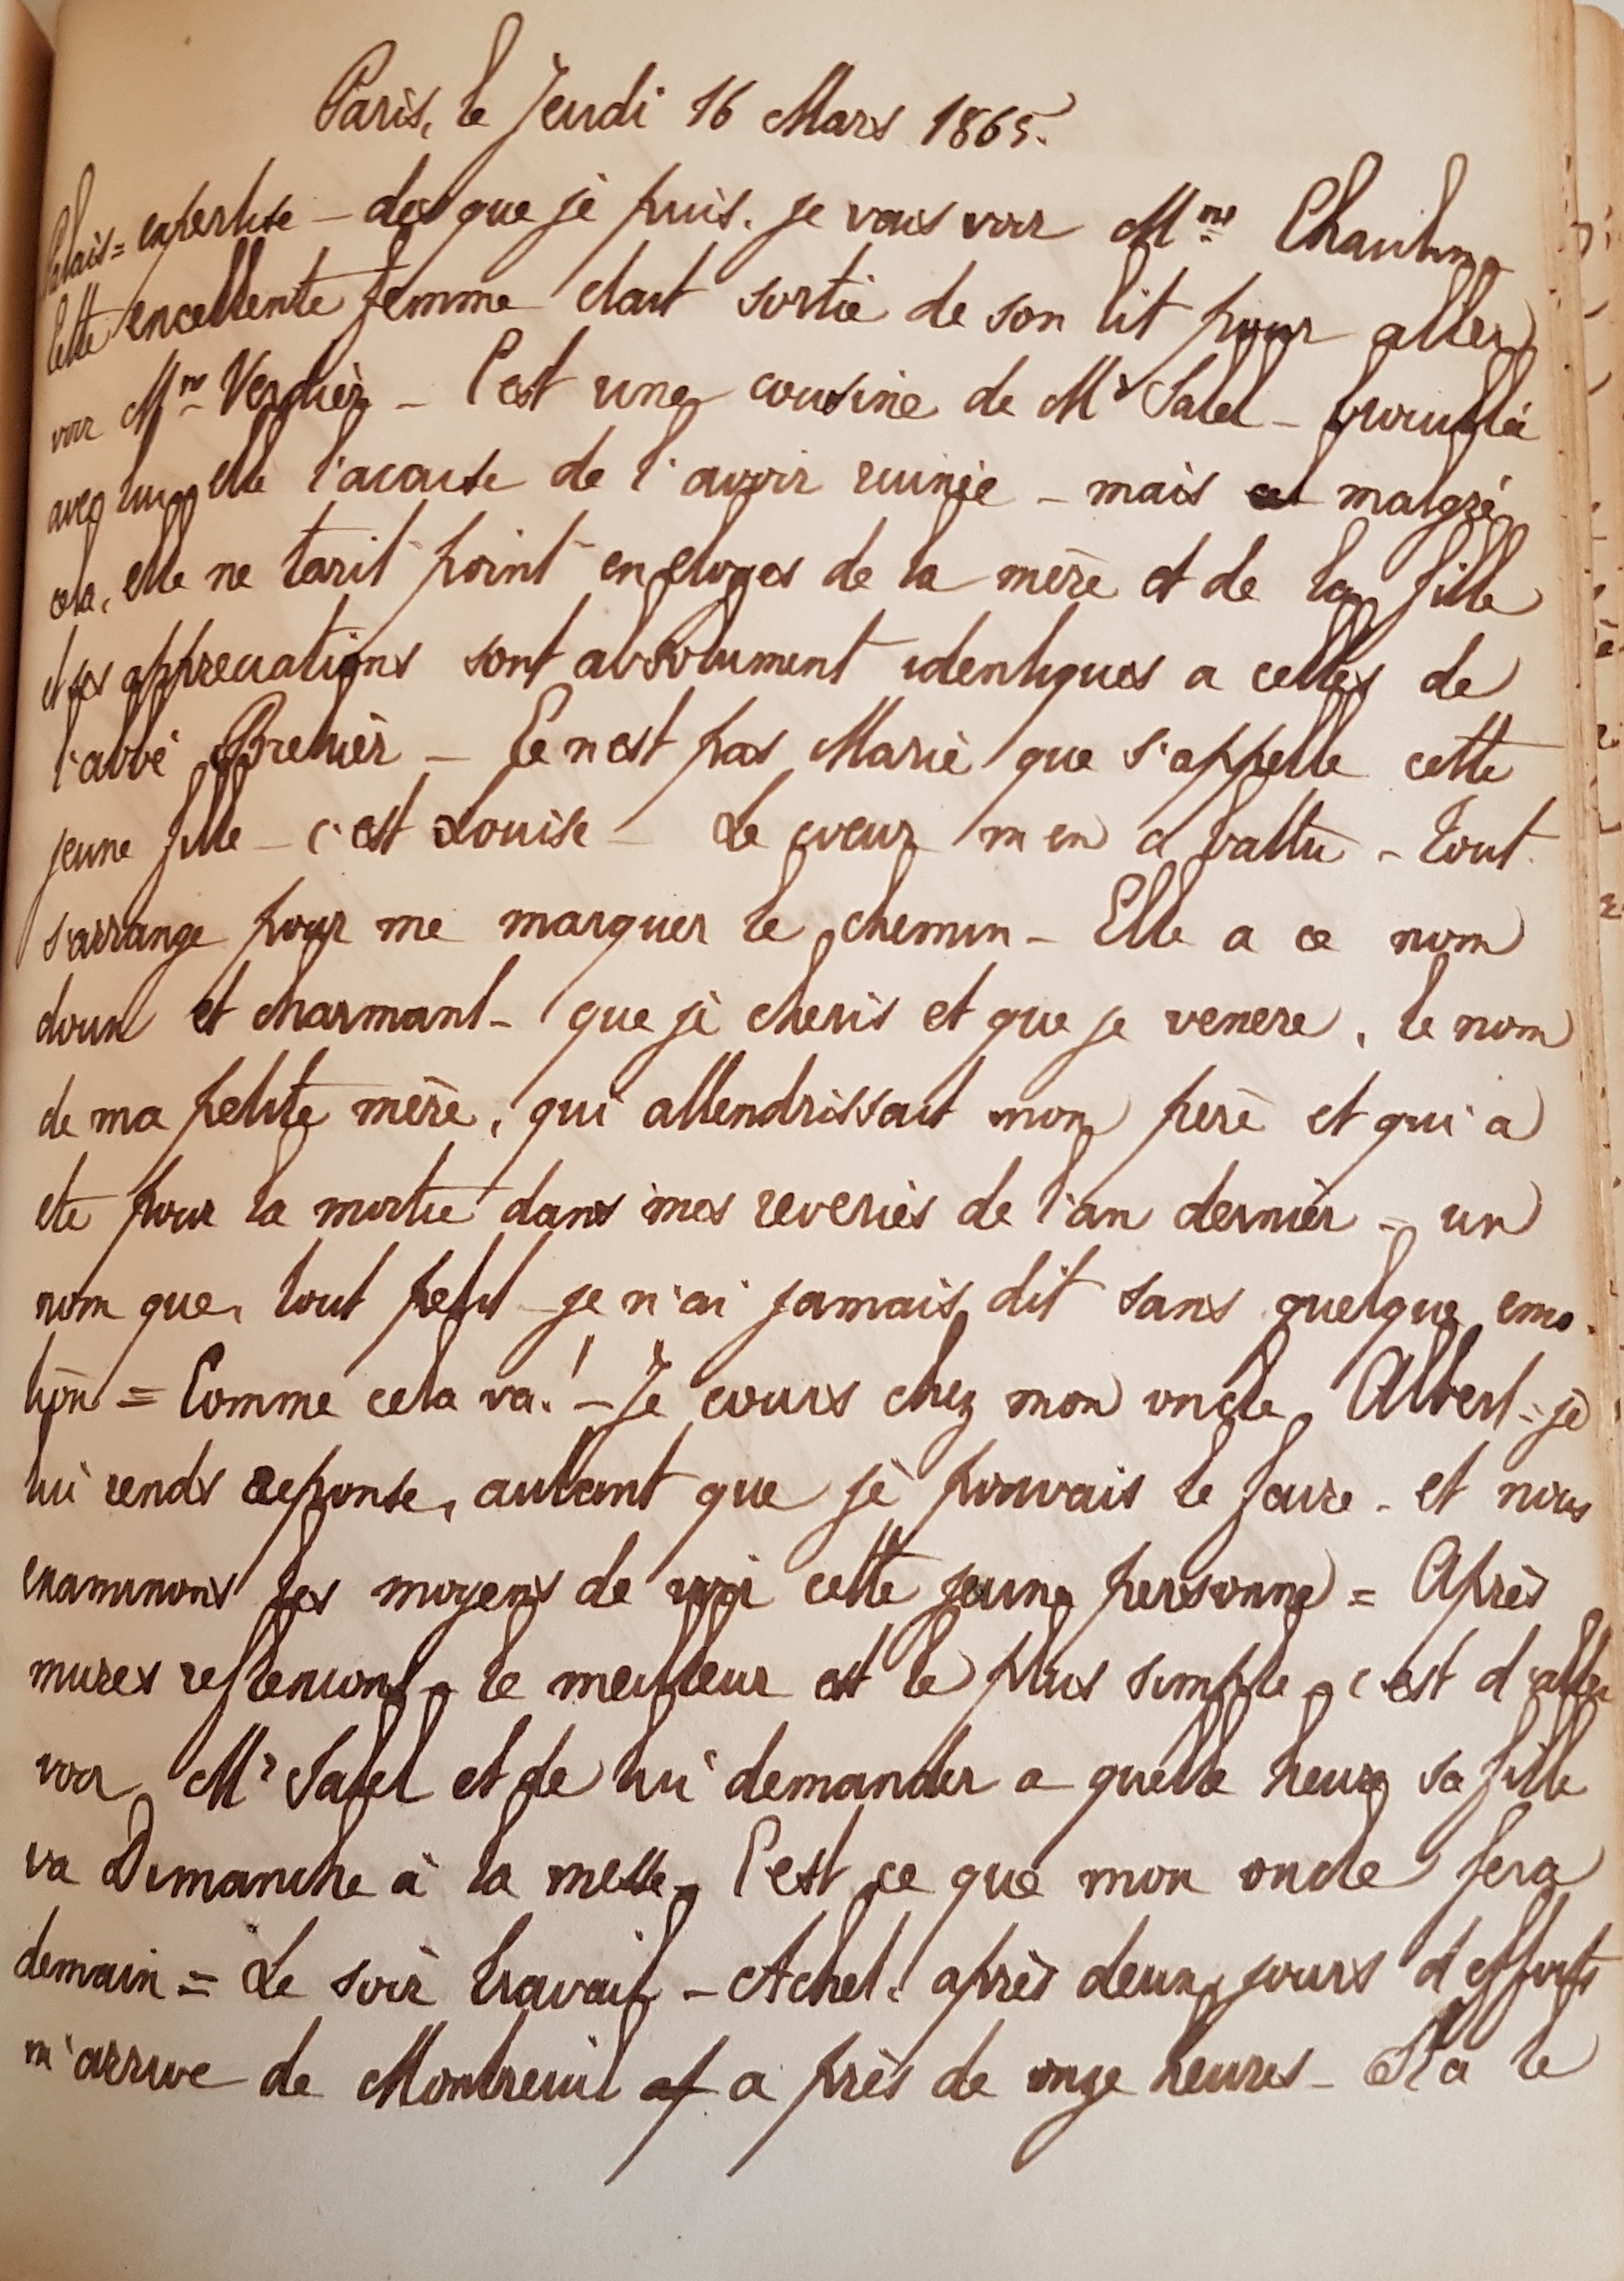 Paris, le Jeudi 16 Mars 1865.
Palais = expertise – des que je puis. je vais voir Mme
Cette excellente femme etait sortie de son lit pour aller
voir Mme Verdier – C'est une cousine de Mr Salel – brouillée
avec lui elle l'accuse de l'avoir ruinée – mais malgré
cela, elle ne tarit point en eloges de la mère et de la fille
et ses appreciations sont absolument identiques a celles de
l'abbé – Ce n'est pas Marie que s'appelle cette
jeune fille – c'est Louise – Le coeur m'en a battu – Tout
s'arrange pour me marquer le chemin – Elle a ce nom
doux et charmant – que je cheris et que je venere, le nom
de ma petite mère, qui attendrissait mon père et qui a
ete pour la moitié dans mes reveries de l'an dernier – un
nom que, tout petit – je n'ai jamais dit sans quelque emo-
tion = Comme cela va ! – Je cours chez mon oncle Albert – je
lui rends reponse, autant que je pouvais le faire – et nous
examinons les moyens de voir cette jeune personne = Après
mures reflexions – le meilleur est le plus simple – c'est d'aller
voir Mr Salel et de lui demander a quelle heure sa fille
va Dimanche à la messe – C'est ce que mon oncle fera
demain = Le soir travail – après deux jours d'efforts
m'arrive de Montreuil a près de onze heures – Il a le